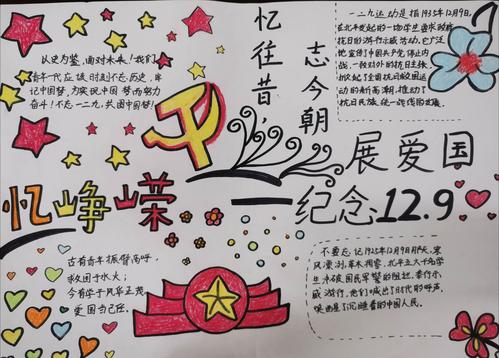 以史为鉴,面对未来!我们
青年一代应该时刻不忘历史,牢
记中国梦,为实现中国梦而努力
奋斗!不忘一二九,共圆中国梦!
忆往昔,
志今朝
一二九运动是指1935年12月9日,
在北平发起的一场学生要求政府
抗日的游行示威活动。它广泛
地宣传了中国共产党停止内
战,一致对外的抗日主张,
掀起了全国抗日救国运
动的新高潮,推动了
抗日民族统一战线的发展。
展爱国
纪念12.9
忆峥嵘
古有青年振臂高呼,
救国于水火;
今有学子风华正茂,
爱国当己任。
不要忘记1935年12月9日那天,寒
风凛冽,草木凋零,北平五六千名学
生冲破国民军警的阻拦,奉行示
威游行,他们喊出了时代的呼声,
唤醒了沉睡着的中国人民。